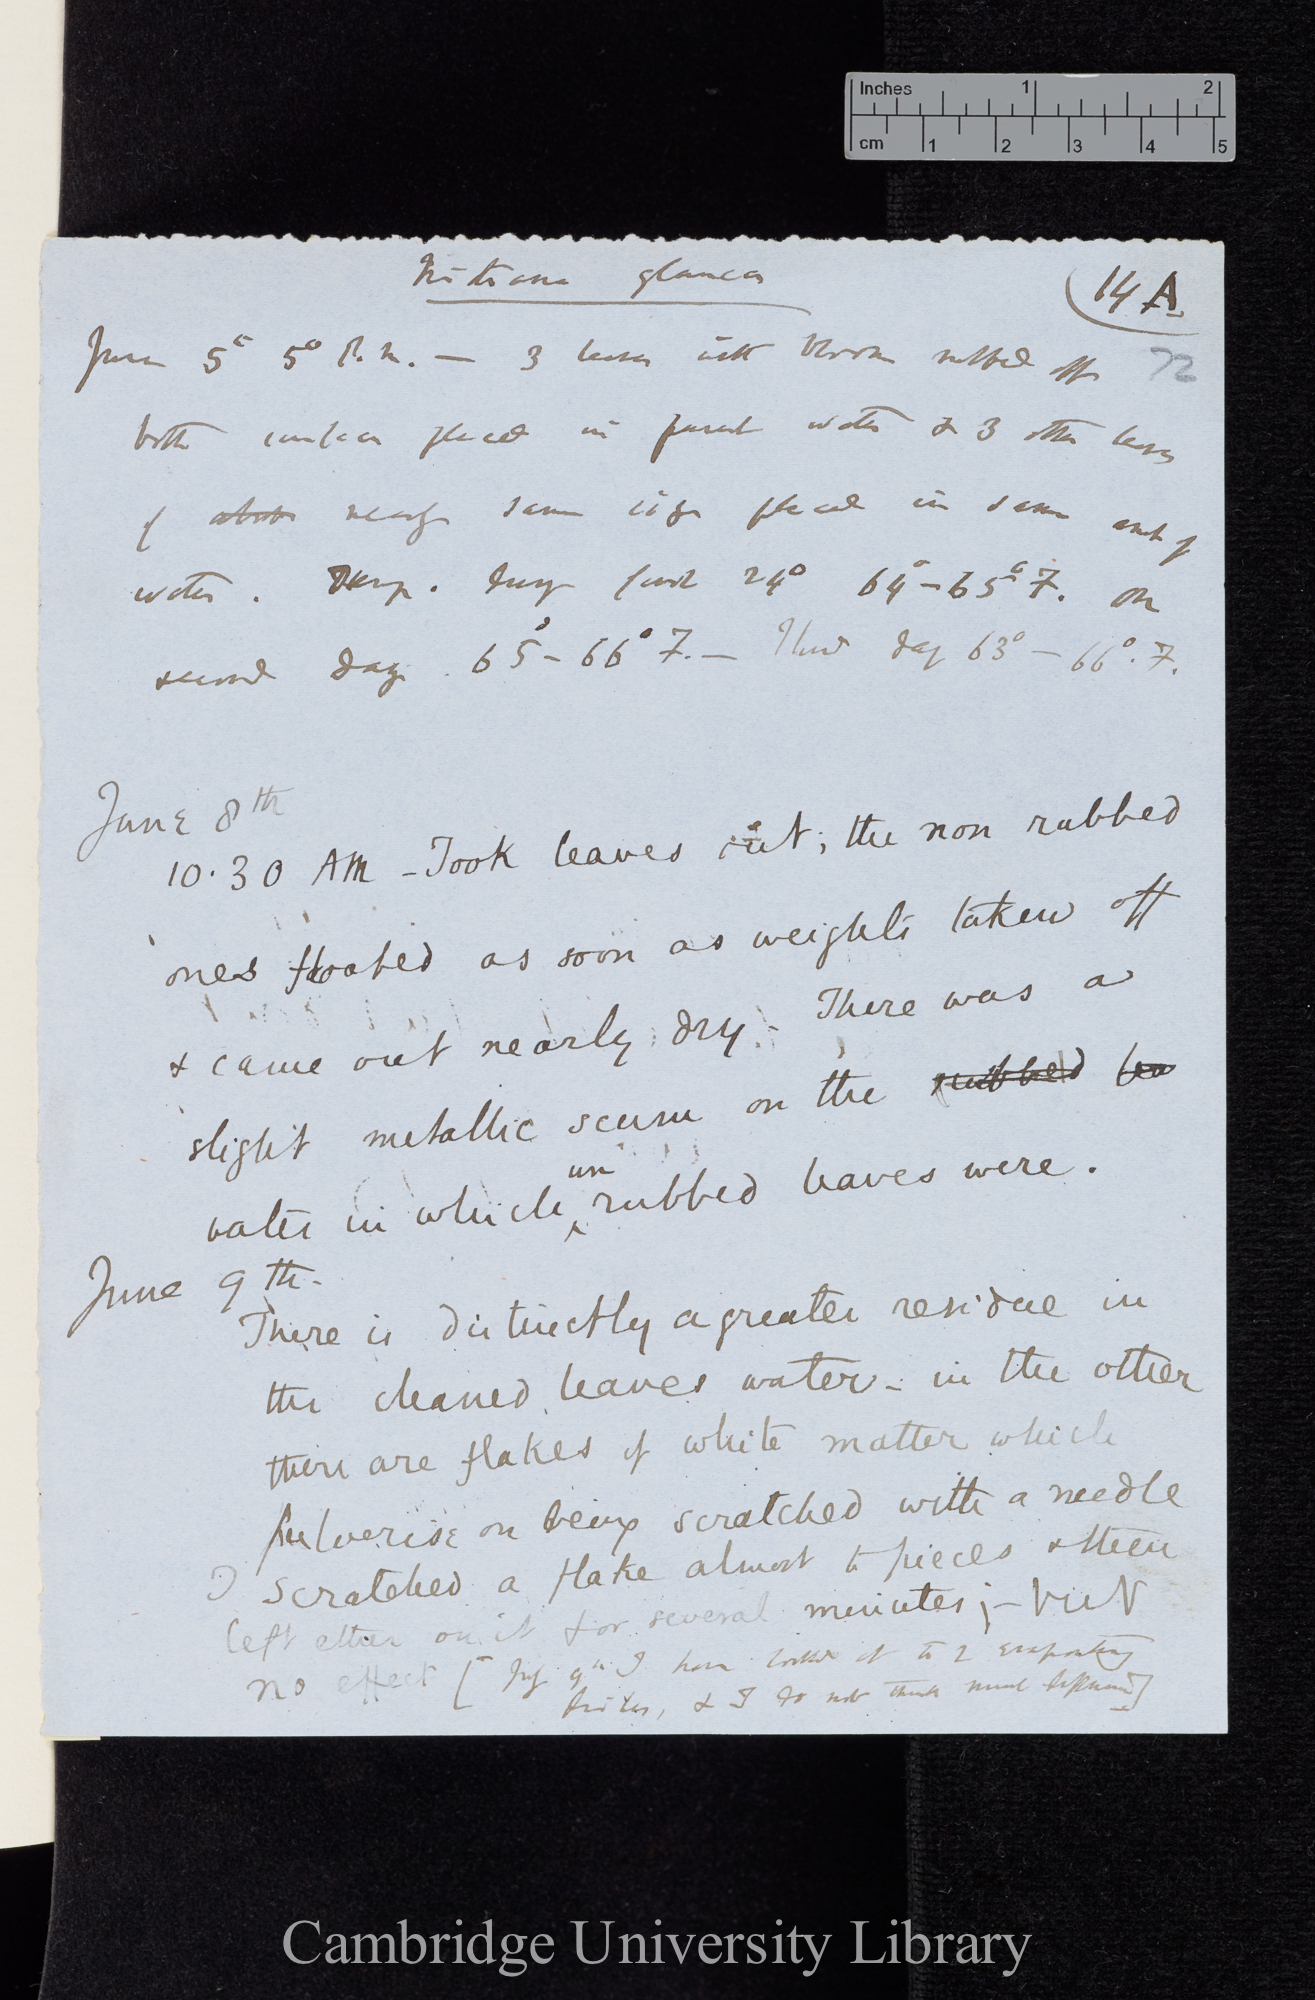 Inches 1 2
cm 1 2 3 4 5
glauca
14 A
June 5th 5° P.m. — 3 leaves with bloom rubbed off
72
both surfaces placed in purest water & 3 other leaves
of about nearly same size placed in same amt of
water. Temp. during first 24° 64°–65° F. on
second day. 65°–66° F. — Third day 63° – 66°. F.
June 8th
10.30 AM – Took leaves out; the non rubbed
ones floated as soon as weights taken off
& came out nearly dry – There was a
slight metallic scum on the rubbed lea
un
water in which ^ rubbed leaves were.
June 9th.
There is distinctly a greater residue in
the cleaned leaves water – in the other
there are flakes of white matter which
pulverise on being scratched with a needle
I scratched a flake almost to pieces & then
left ether on it for several minutes; – but
no effect [ July 9th I have looked at to 2 evaporating
dishes, & I do not think much difference]
Cambridge University Library